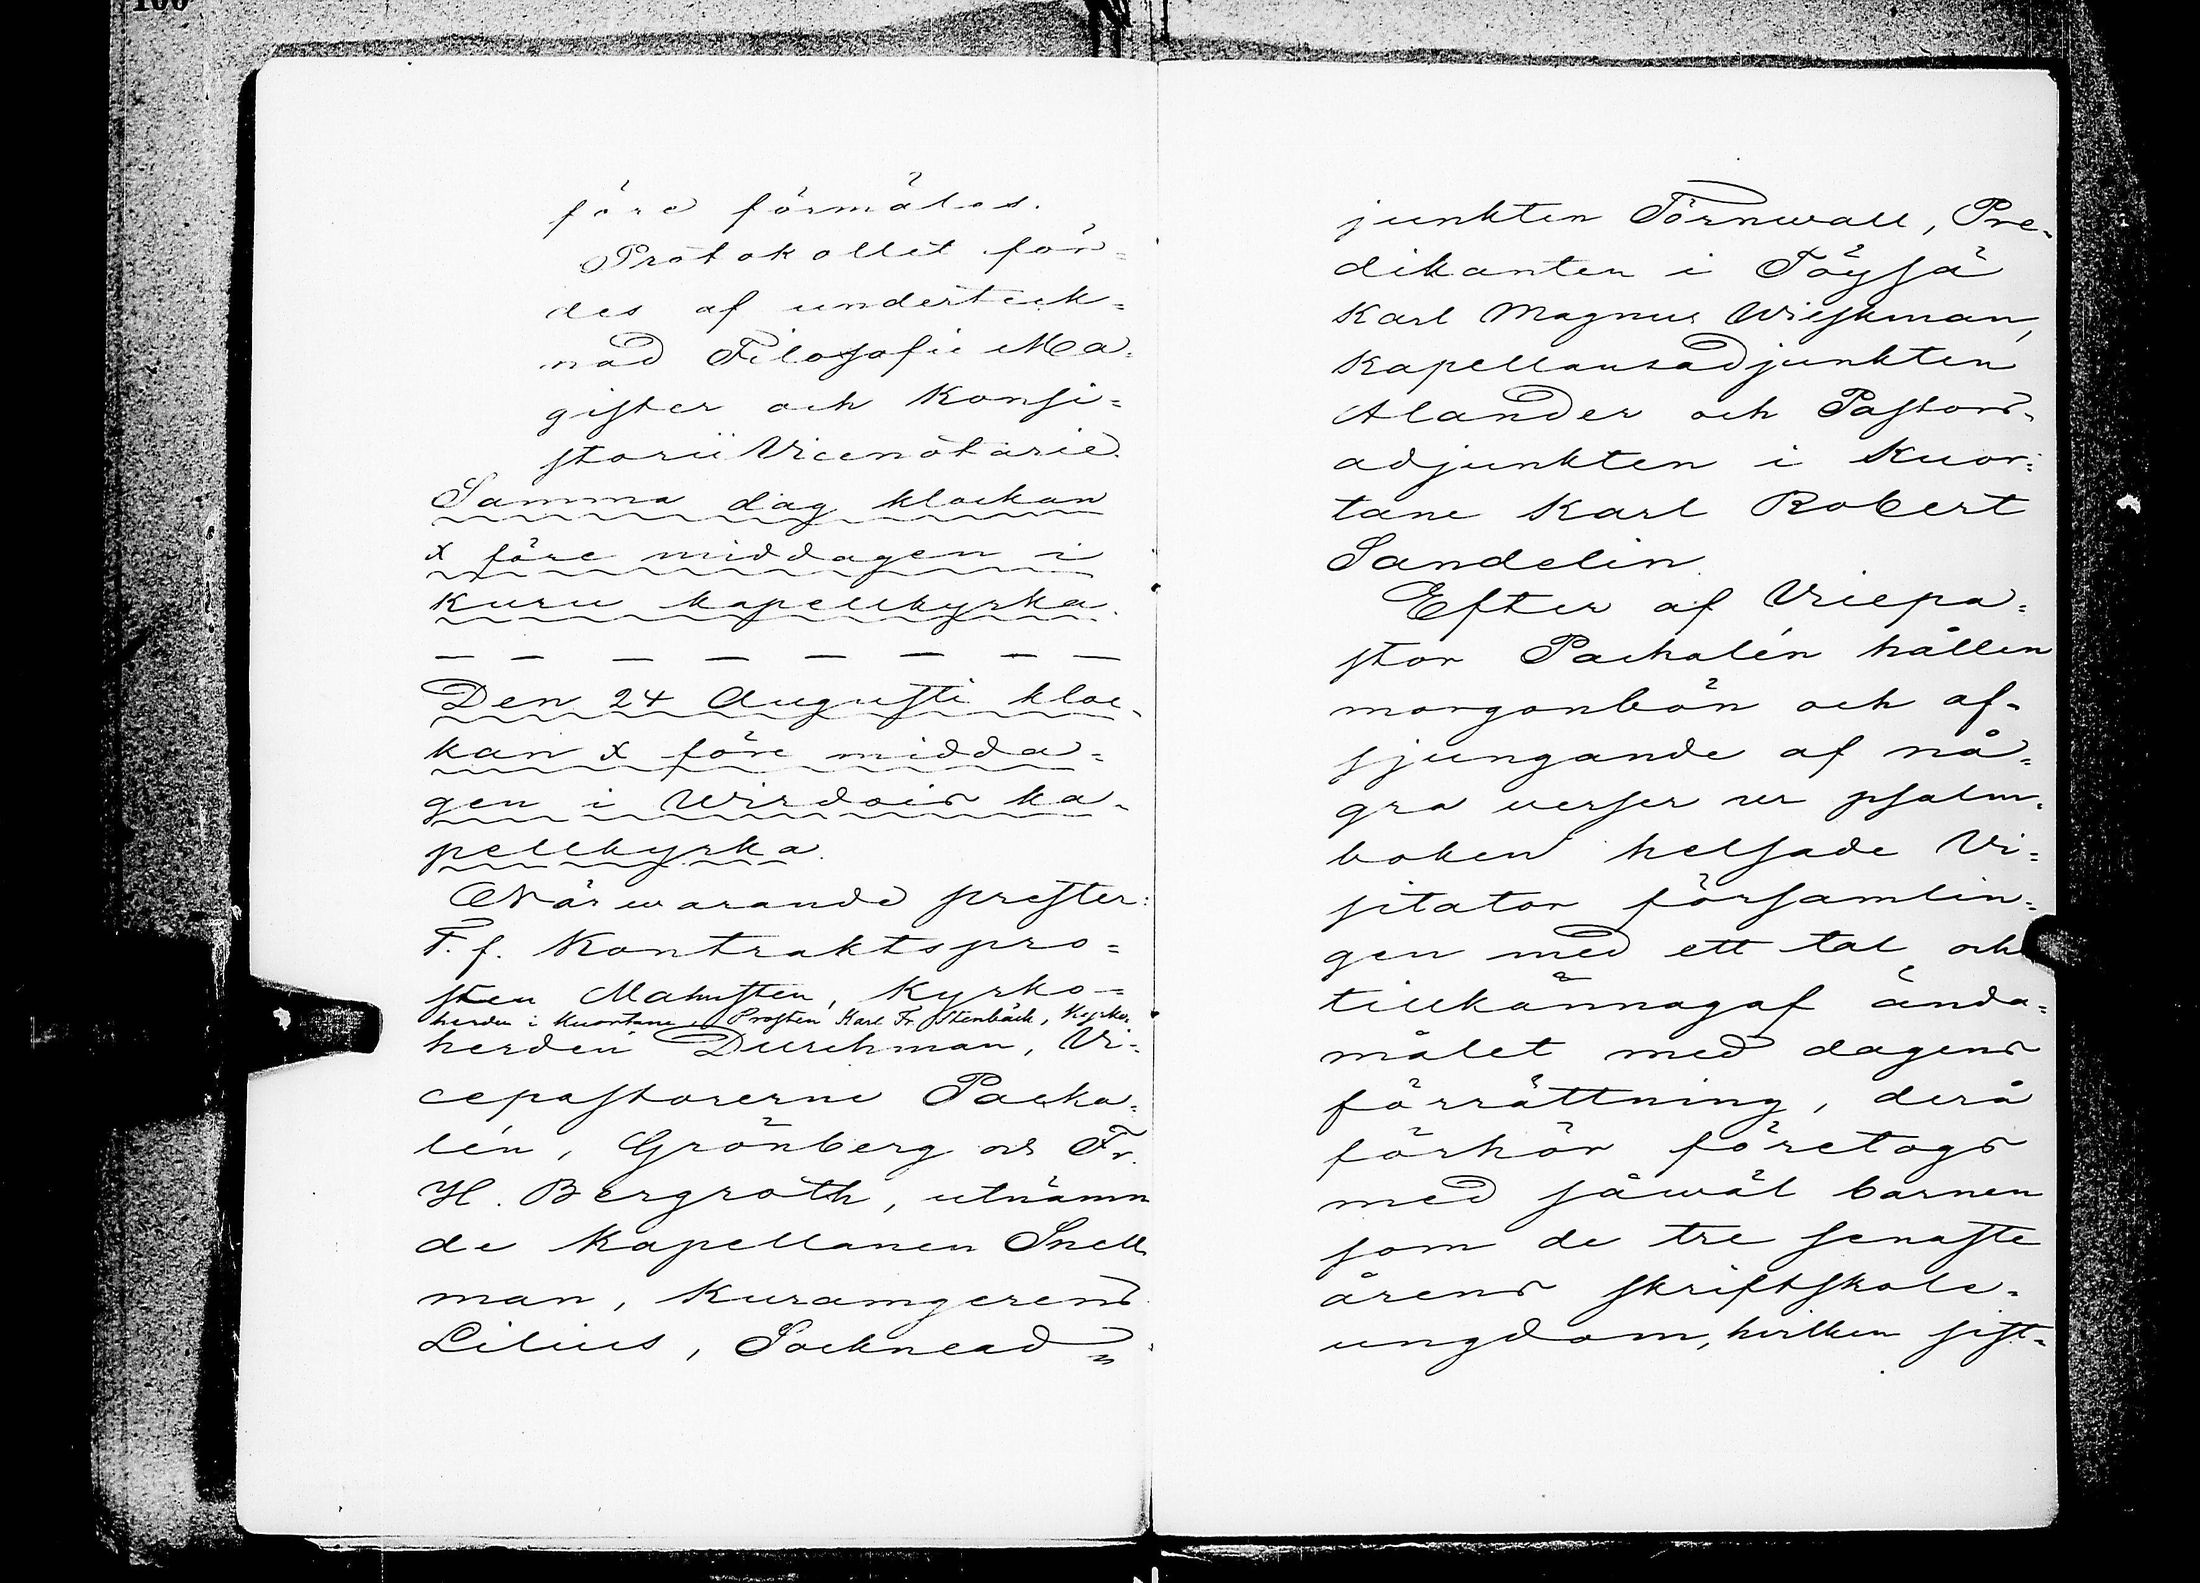 100
före förmäles.
Protokollet för=
des af underteck=
nad Filosofie Ma=
gister och Konsi=
storii Vicenotarie.
Samma dag klockan
X före middagen i
Kuru kapellkyrka.
— — — — — — — —
Den 24 Augusti kloc-
kan X före midda=
gen i Wirdois ka-
pellkyrka.
Närwarande prester:
T. f. Kontraktspro=
sten Malmsten, Kyrko=
herden i Kuortane, Prosten Karl Fr. Stenbäck, Kyrko-
herden Durchman, Vi=
cepastorerne Packa=
lén, Grönberg och Fr.
H. Bergroth, utnämn
de Kapellanen Snell
man, Kuramgerens
Lilius, Socknead=
junkten Törnwall, Pre-
dikanten i Töysä
Karl Magnus Wieskman,
Kapellansadjunkten
Alander och Pastors-
adjunkten i Kuor=
tane Karl Robert
Sandelin.
Efter af Vicepa=
stor Packalén hållen
morgonbön och af-
sjungande af nå=
gra verser ur psalm-
boken helsade Vi=
sitator församlin=
gen med ett tal och
tillkännagaf ända=
målet med dagens
förrättning, derå
förhör företogs
med såwäl barnen
som de tre senaste
årens skriftskole-
ungdom, hvilken sist-